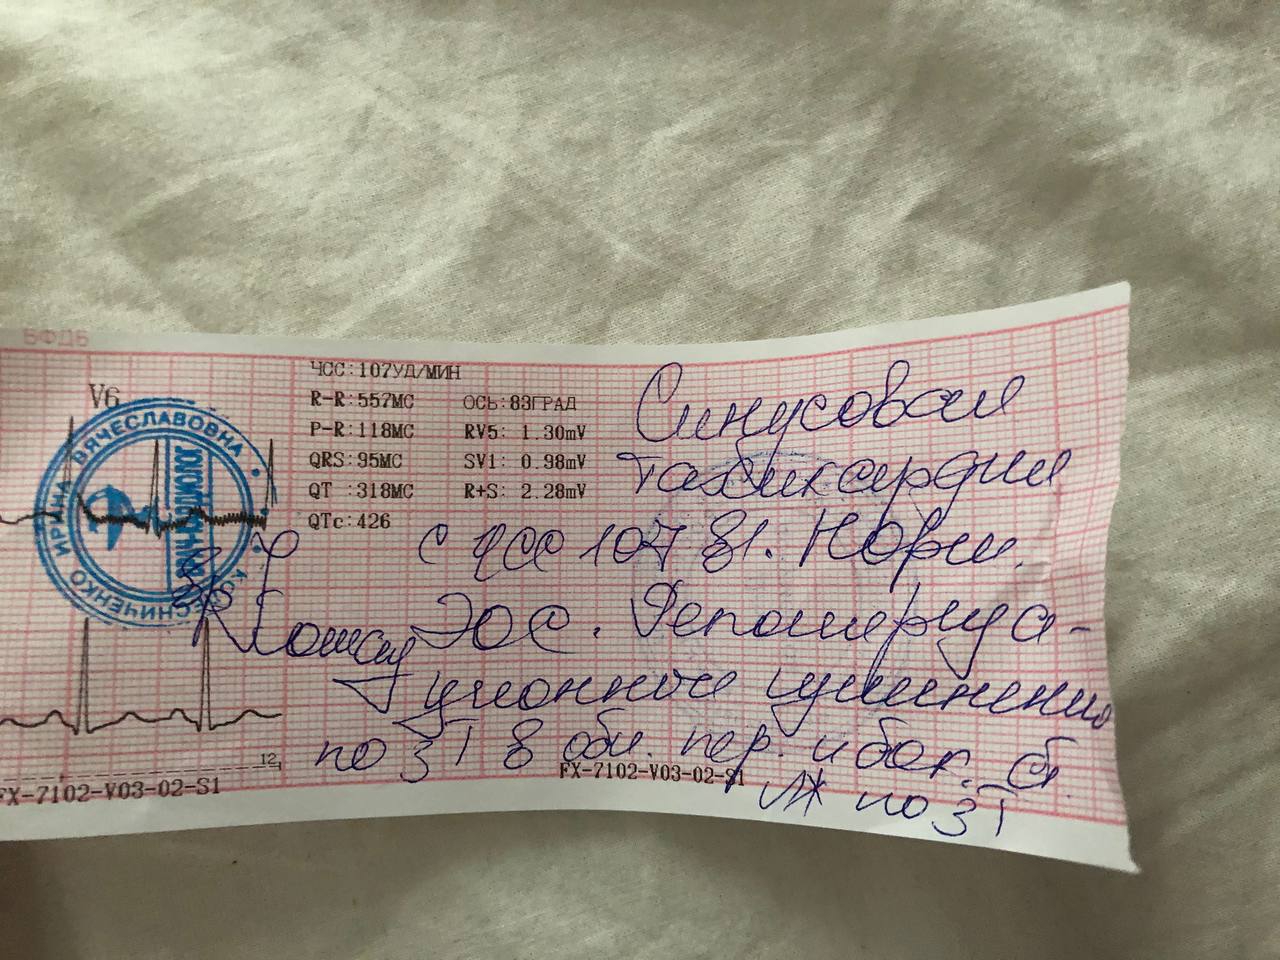 БФДБ
V6
ЧСС:107УД/МИН
R-R:557МС ОСЬ:83ГРАД
P-R:118МС RV5: 1.30mV
QRS:95МС SV1: 0.98mV
QT :318МС R+S: 2.28mV
QTc:426
ИРИНА ВЯЧЕСЛАВОВНА
ВРАЧ-КАРДИОЛОГ
Синусовая
тахикардия
с ЧСС 107 в1. Норм.
ЭОС. Реполяриза-
ционные изменения
по ЗТ в обл. пер. и бок. ст.
ЛЖ по ЗТ
12
FX-7102-V03-02-S1
FX-7102-V03-02-S1